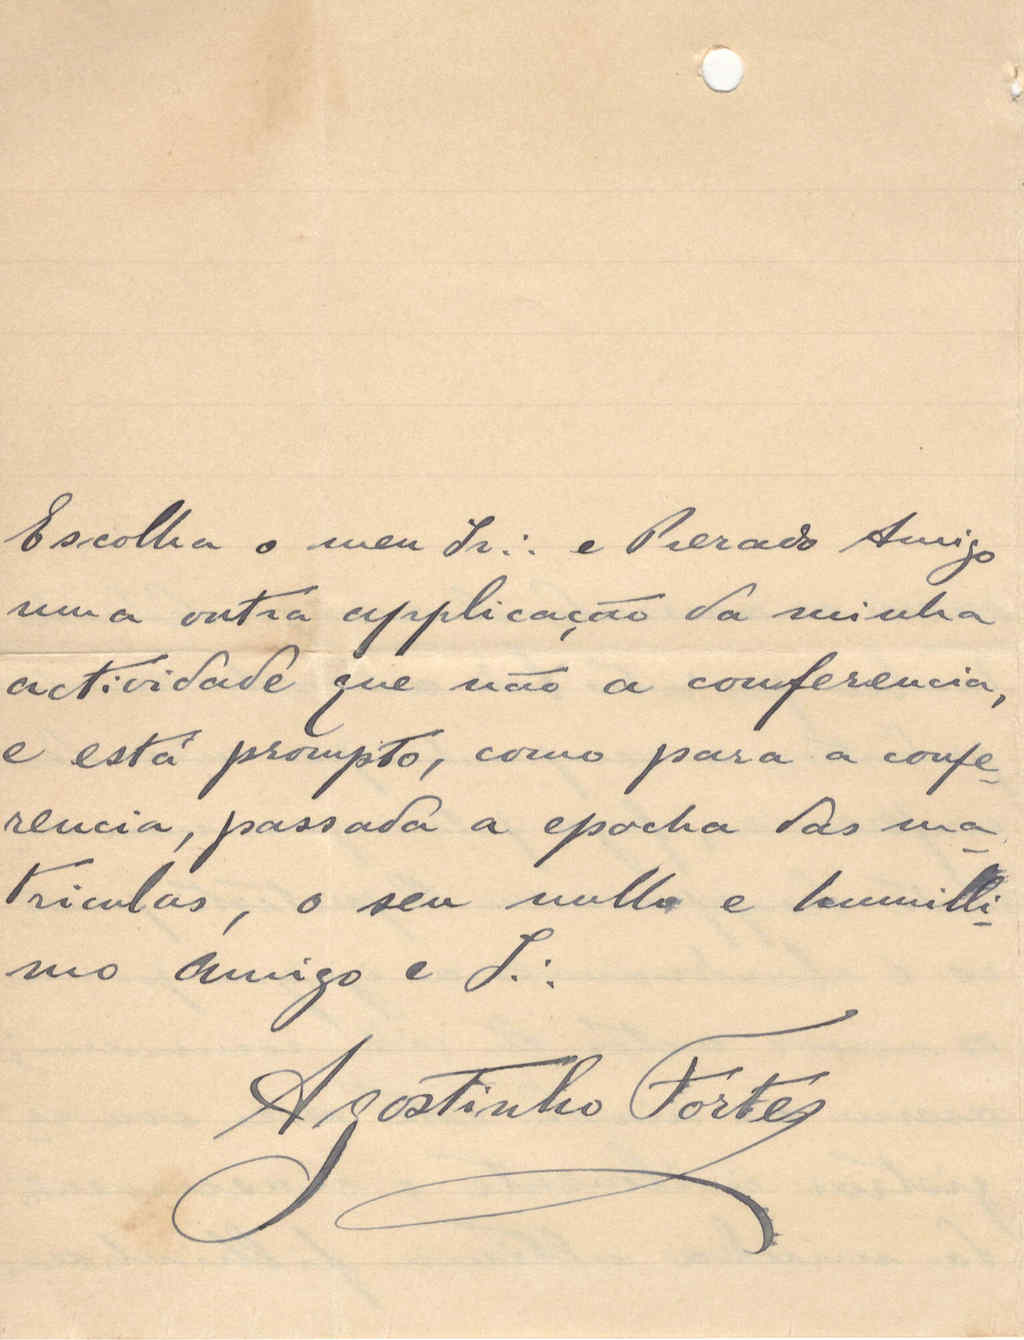 Escolha o meu Ir∴ e Prezado Amigo
uma outra applicação da minha
actividade que não a conferencia,
e está prompto, como para a confe-
rencia, passada a epocha das ma-
triculas, o seu nullo e humilli-
mo Amigo e I∴
Agostinho Fortes